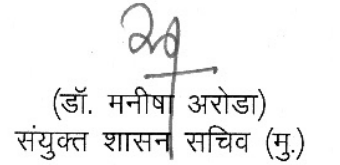 (डॉ. मनीषा अरोडा)
संयुक्त शासन सचिव (मु.)